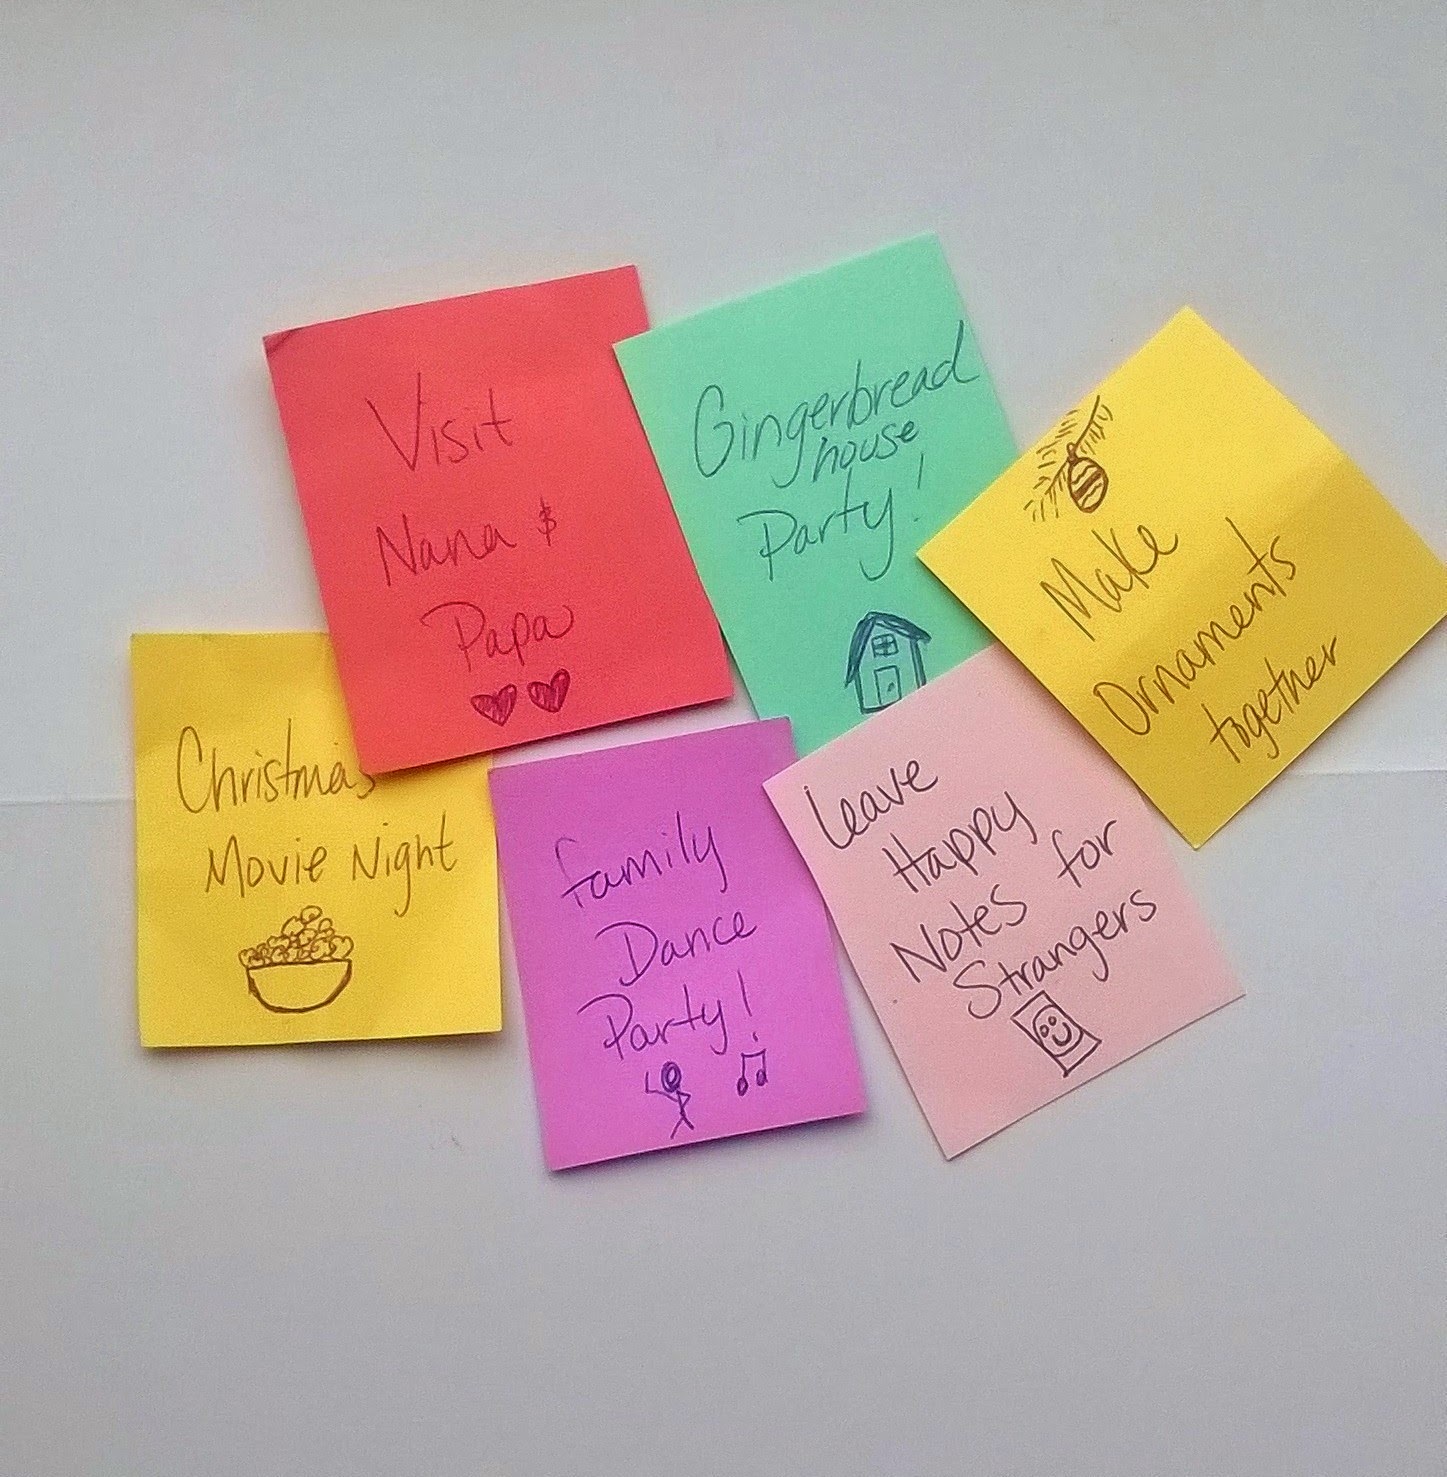 Visit
Nana &
Papa
Gingerbread
house
Party!
Make
Ornaments
together
Christmas
Movie Night
Family
Dance
Party!
Leave
Happy
Notes for
Strangers